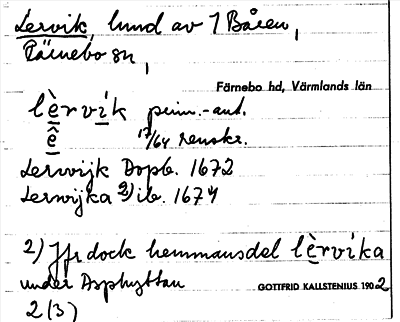 Lervik, lund av 1 Båsen,
Färnebo sn,
Färnebo hd, Värmlands län
lèrvik prim.-ant.
ê 17/64 renskr.
Lerwijk Dopb. 1672
Lerwijka 2) ib. 1674
2) Jfr dock hemmansdel lèrvika
under Asphyttan
GOTTFRID KALLSTENIUS 1902
2 (3)